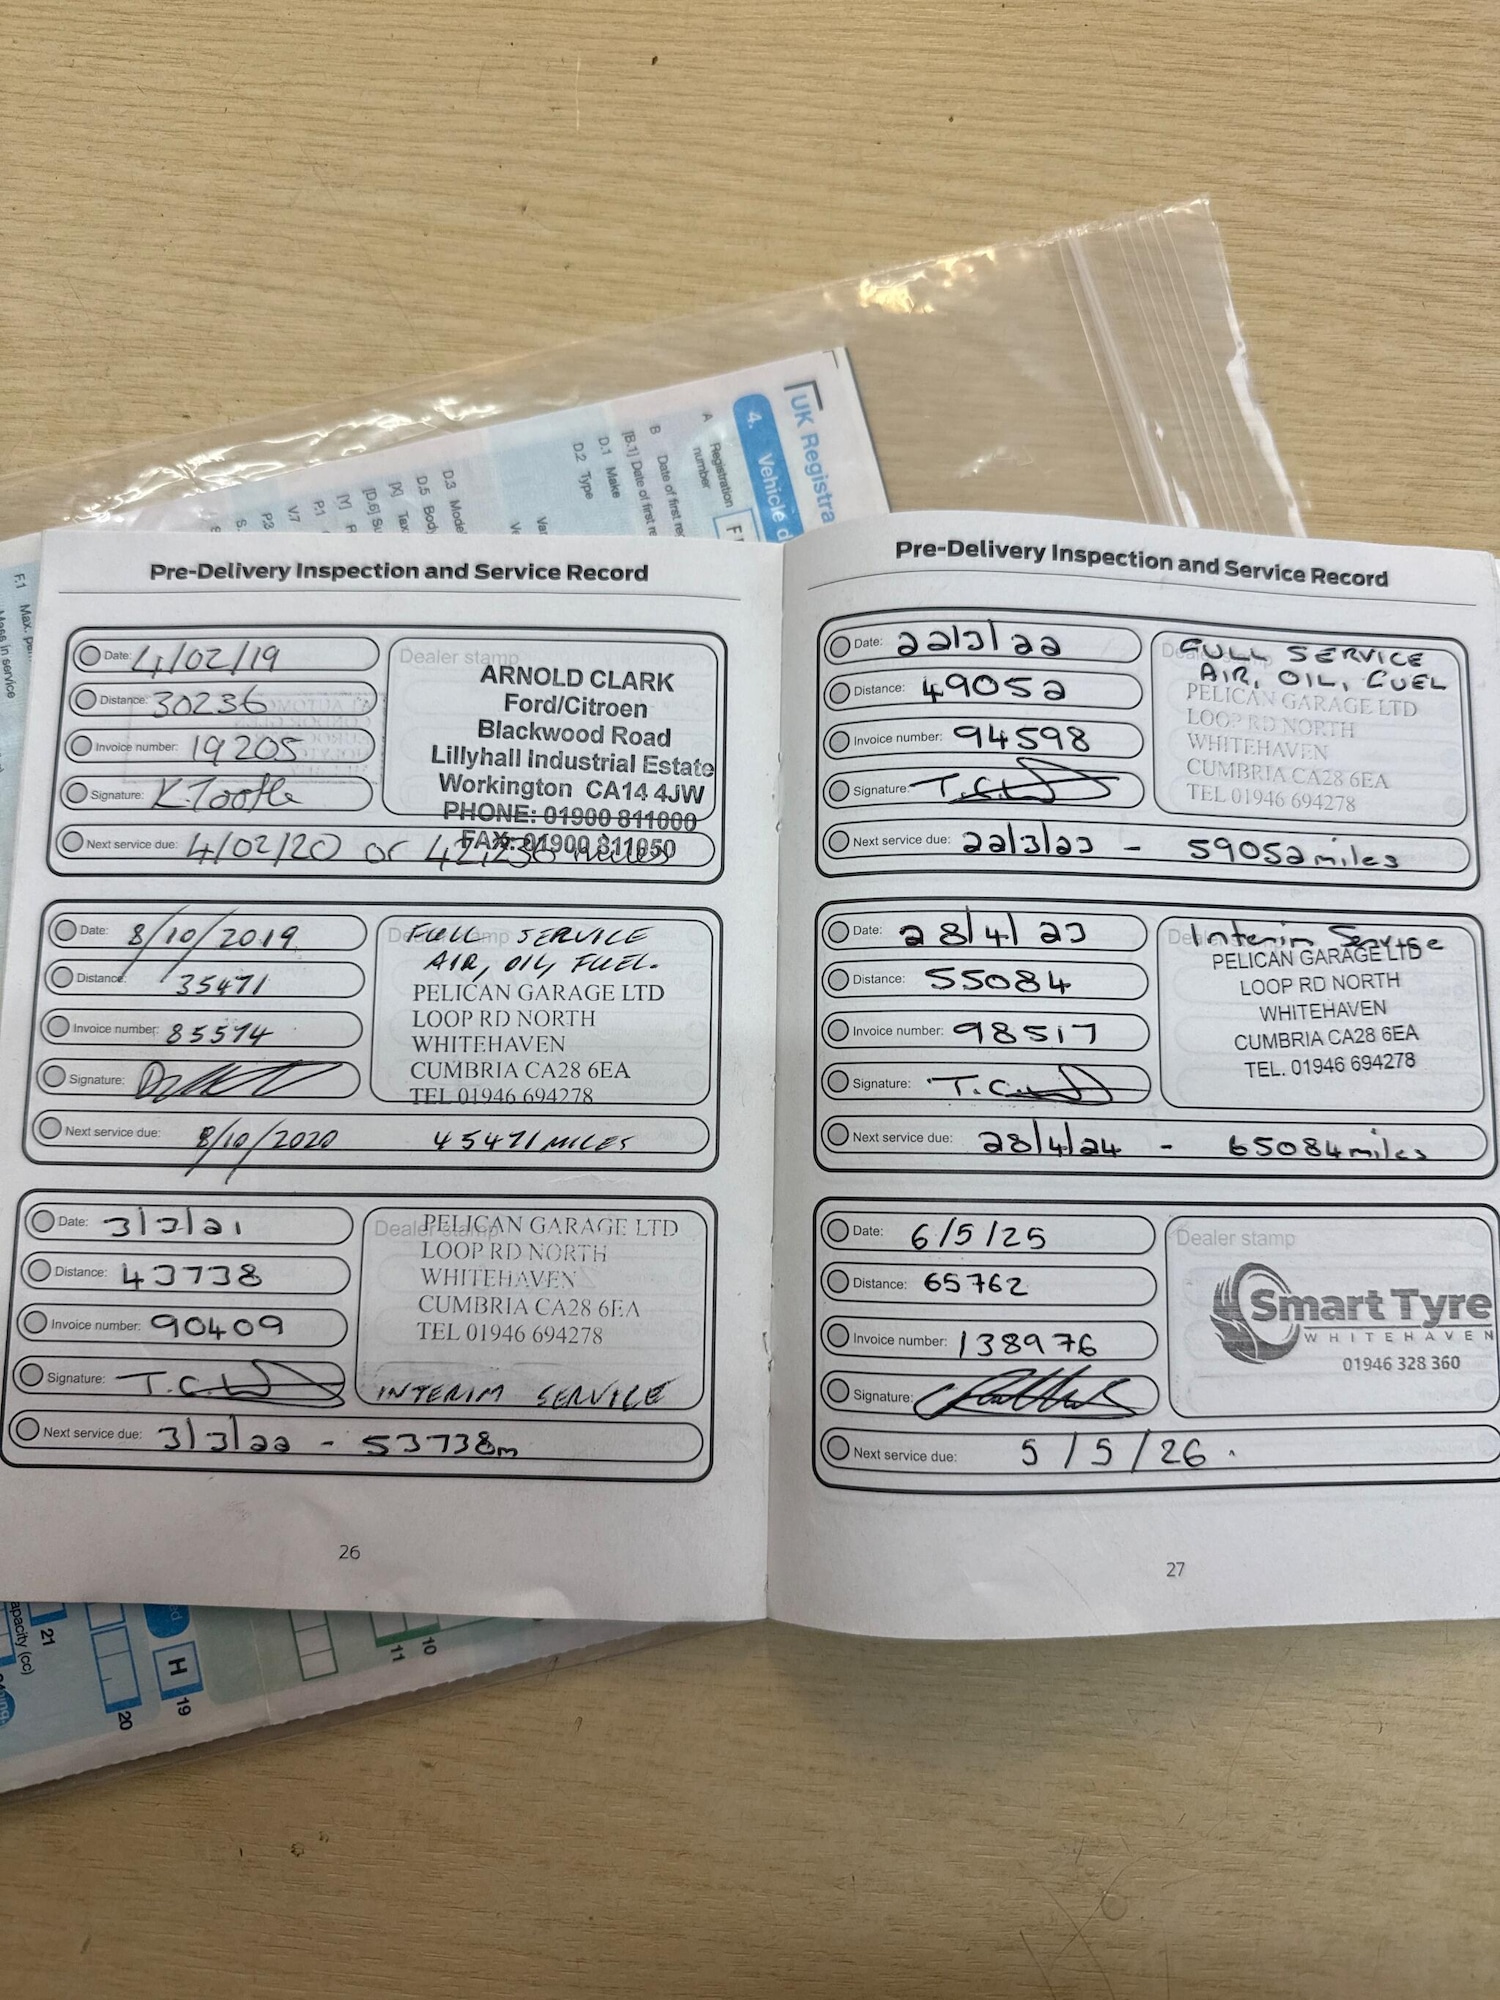 UK Registra
4. Vehicle d
A Registration number
B Date of first re
[B.1] Date of first re
D.1 Make
D.2 Type
Va
Ve
D.3 Mode
D.5 Body
[X] Tax
[D.6] Su
[Y] R
P.1
V.7
P.3
S.
F.1 Max. per
Mass in service
Pre-Delivery Inspection and Service Record
Date: 4/02/19
Distance: 30236
Invoice number: 19205
Signature: K.Toofle
Next service due: 4/02/20 or 42,236 miles
Dealer stamp
ARNOLD CLARK
Ford/Citroen
Blackwood Road
Lillyhall Industrial Estate
Workington CA14 4JW
PHONE: 01900 811000
FAX: 01900 811050
Date: 8/10/2019
Distance: 35471
Invoice number: 85574
Signature:
Next service due: 8/10/2020 45471 MILES
Dealer stamp
FULL SERVICE
AIR, OIL, FUEL.
PELICAN GARAGE LTD
LOOP RD NORTH
WHITEHAVEN
CUMBRIA CA28 6EA
TEL 01946 694278
Date: 3/3/21
Distance: 43738
Invoice number: 90409
Signature: T.C
Next service due: 3/3/22 - 53738m
Dealer stamp
PELICAN GARAGE LTD
LOOP RD NORTH
WHITEHAVEN
CUMBRIA CA28 6EA
TEL 01946 694278
INTERIM SERVICE
26
Pre-Delivery Inspection and Service Record
Date: 22/3/22
Distance: 49052
Invoice number: 94598
Signature: T.C.
Next service due: 22/3/23 - 59052miles
Dealer stamp
FULL SERVICE
AIR, OIL, FUEL
PELICAN GARAGE LTD
LOOP RD NORTH
WHITEHAVEN
CUMBRIA CA28 6EA
TEL 01946 694278
Date: 28/4/23
Distance: 55084
Invoice number: 98517
Signature: T.C
Next service due: 28/4/24 - 65084miles
Dealer stamp
Interim Service
PELICAN GARAGE LTD
LOOP RD NORTH
WHITEHAVEN
CUMBRIA CA28 6EA
TEL. 01946 694278
Date: 6/5/25
Distance: 65762
Invoice number: 138976
Signature:
Next service due: 5/5/26.
Dealer stamp
Smart Tyre
WHITEHAVEN
01946 328 360
27
apacity (cc)
21
20
H
19
11
10